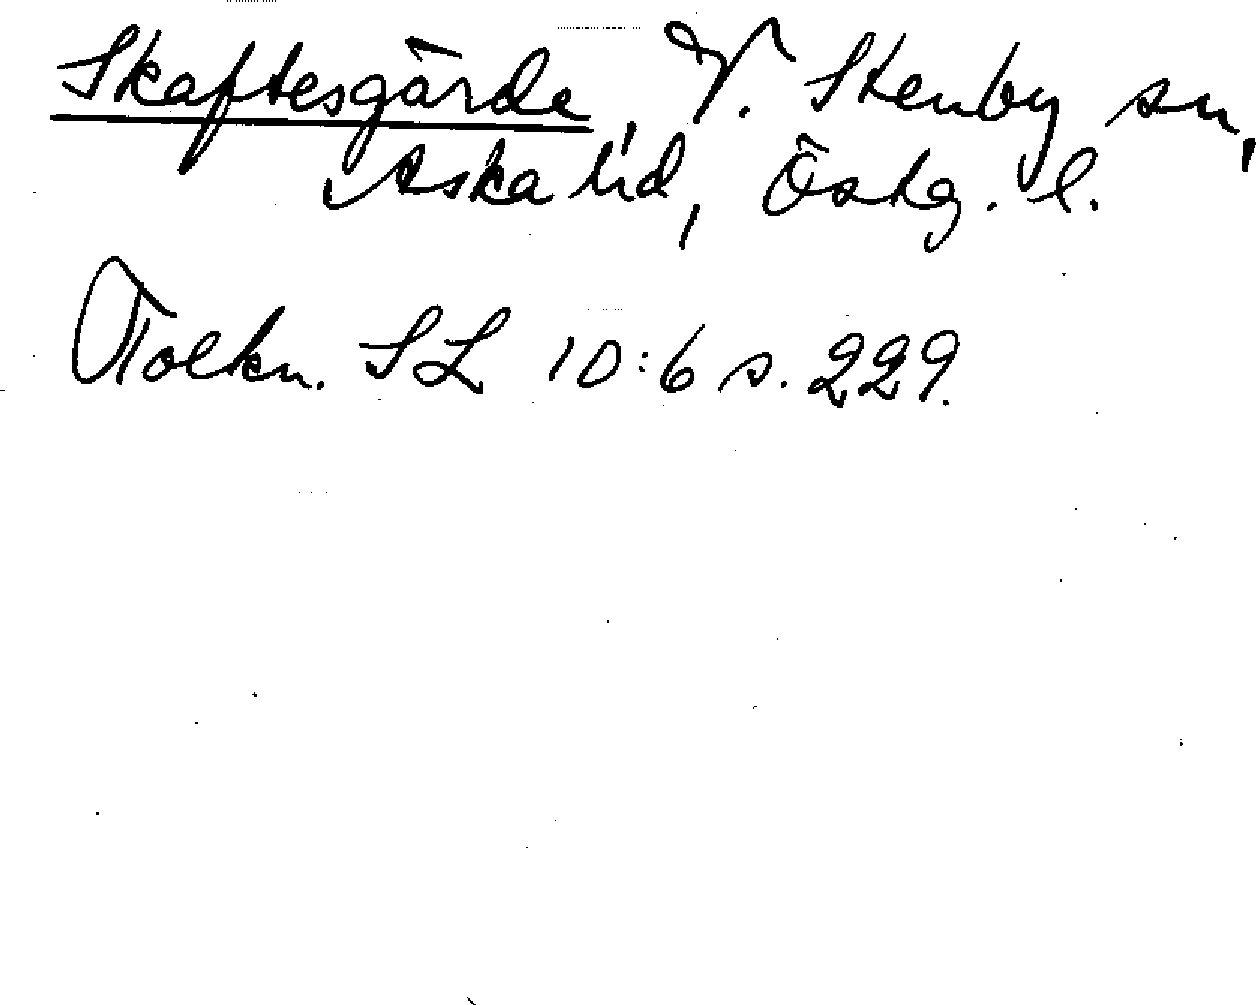 Skaftesgärde, V. Stenby sn,
Aska hd, Östg. l.
Tolkn. SL 10:6 s. 229.